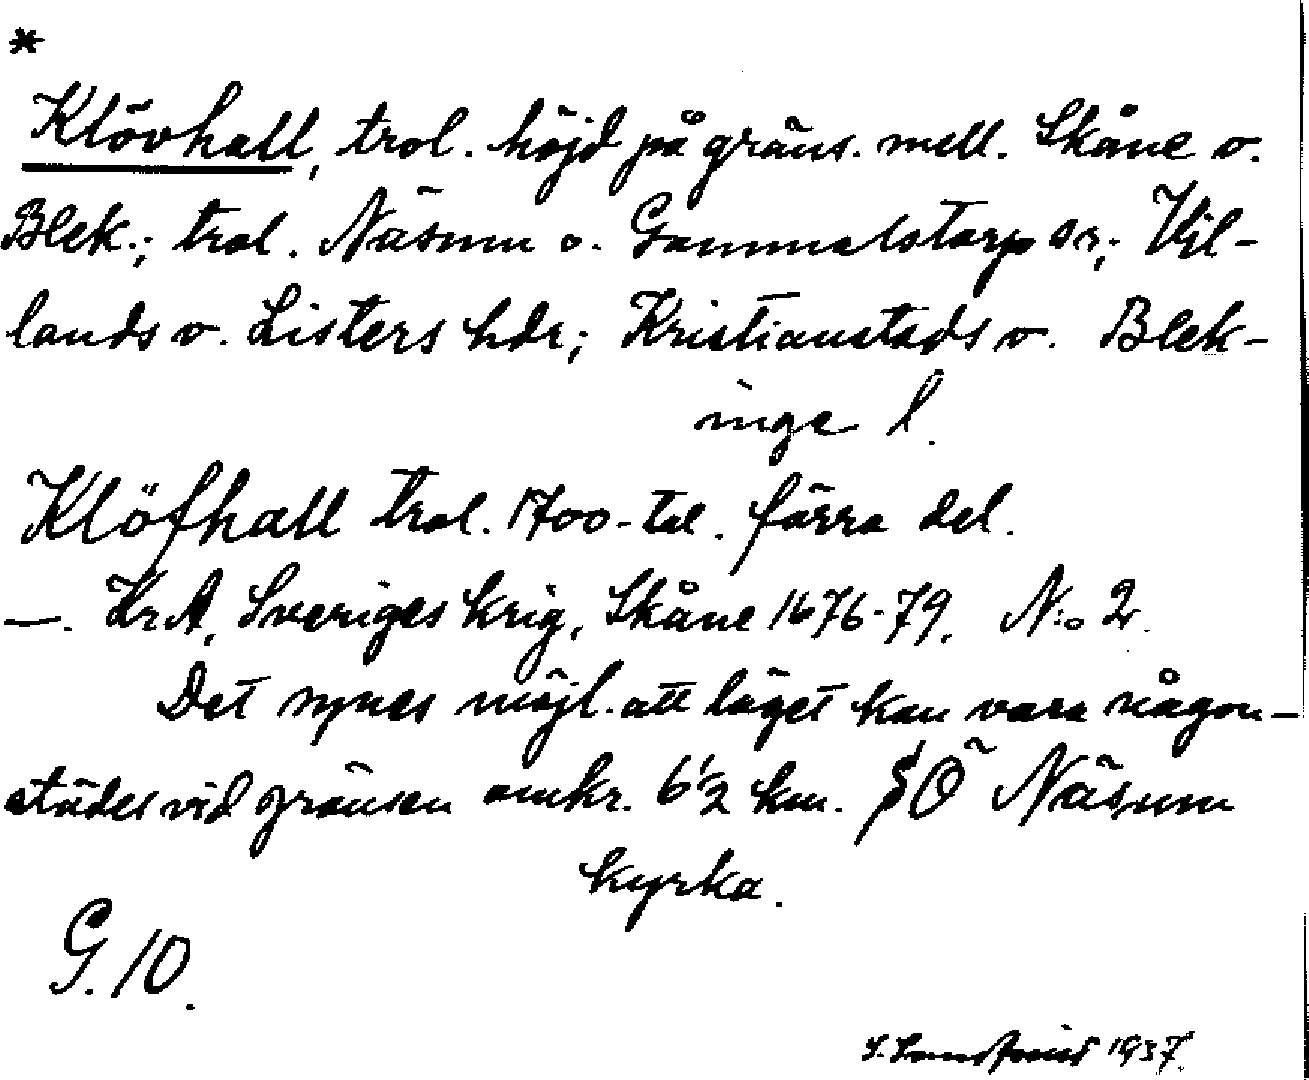 *
Klövhall, trol. höjd på gräns. mell. Skåne o.
Blek.; trol. Näsum o. Gammalstorp sr; Vil-
lands o. Listers hdr; Kristianstads o. Blek-
inge l.
Klöfhall trol. 1700-tal. förra del.
—. KrA, Sveriges krig, Skåne 1676-79. N:o 2.
Det synes möjl. att läget kan vara någon-
städes vid gränsen omkr. 6 1/2 km. SÖ Näsum
kyrka.
G. 10.
1937.